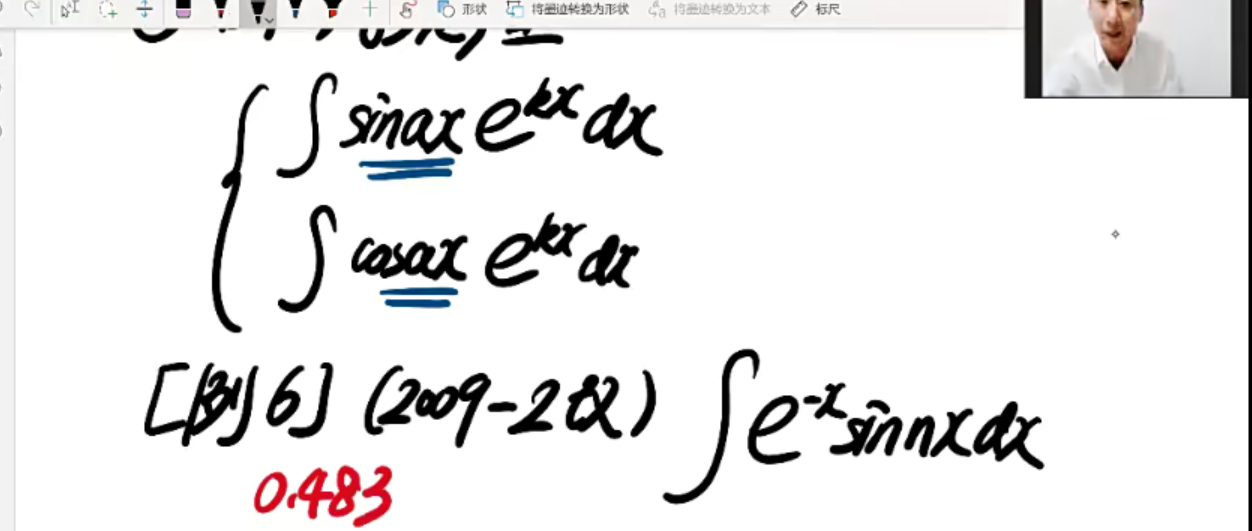 形状 将墨迹转换为形状 将墨迹转换为文本 标尺
∫ sinax e^{kx} dx
∫ cosax e^{kx} dx
[例6] (2009-2改) ∫ e^{-x} sin nx dx
0.483